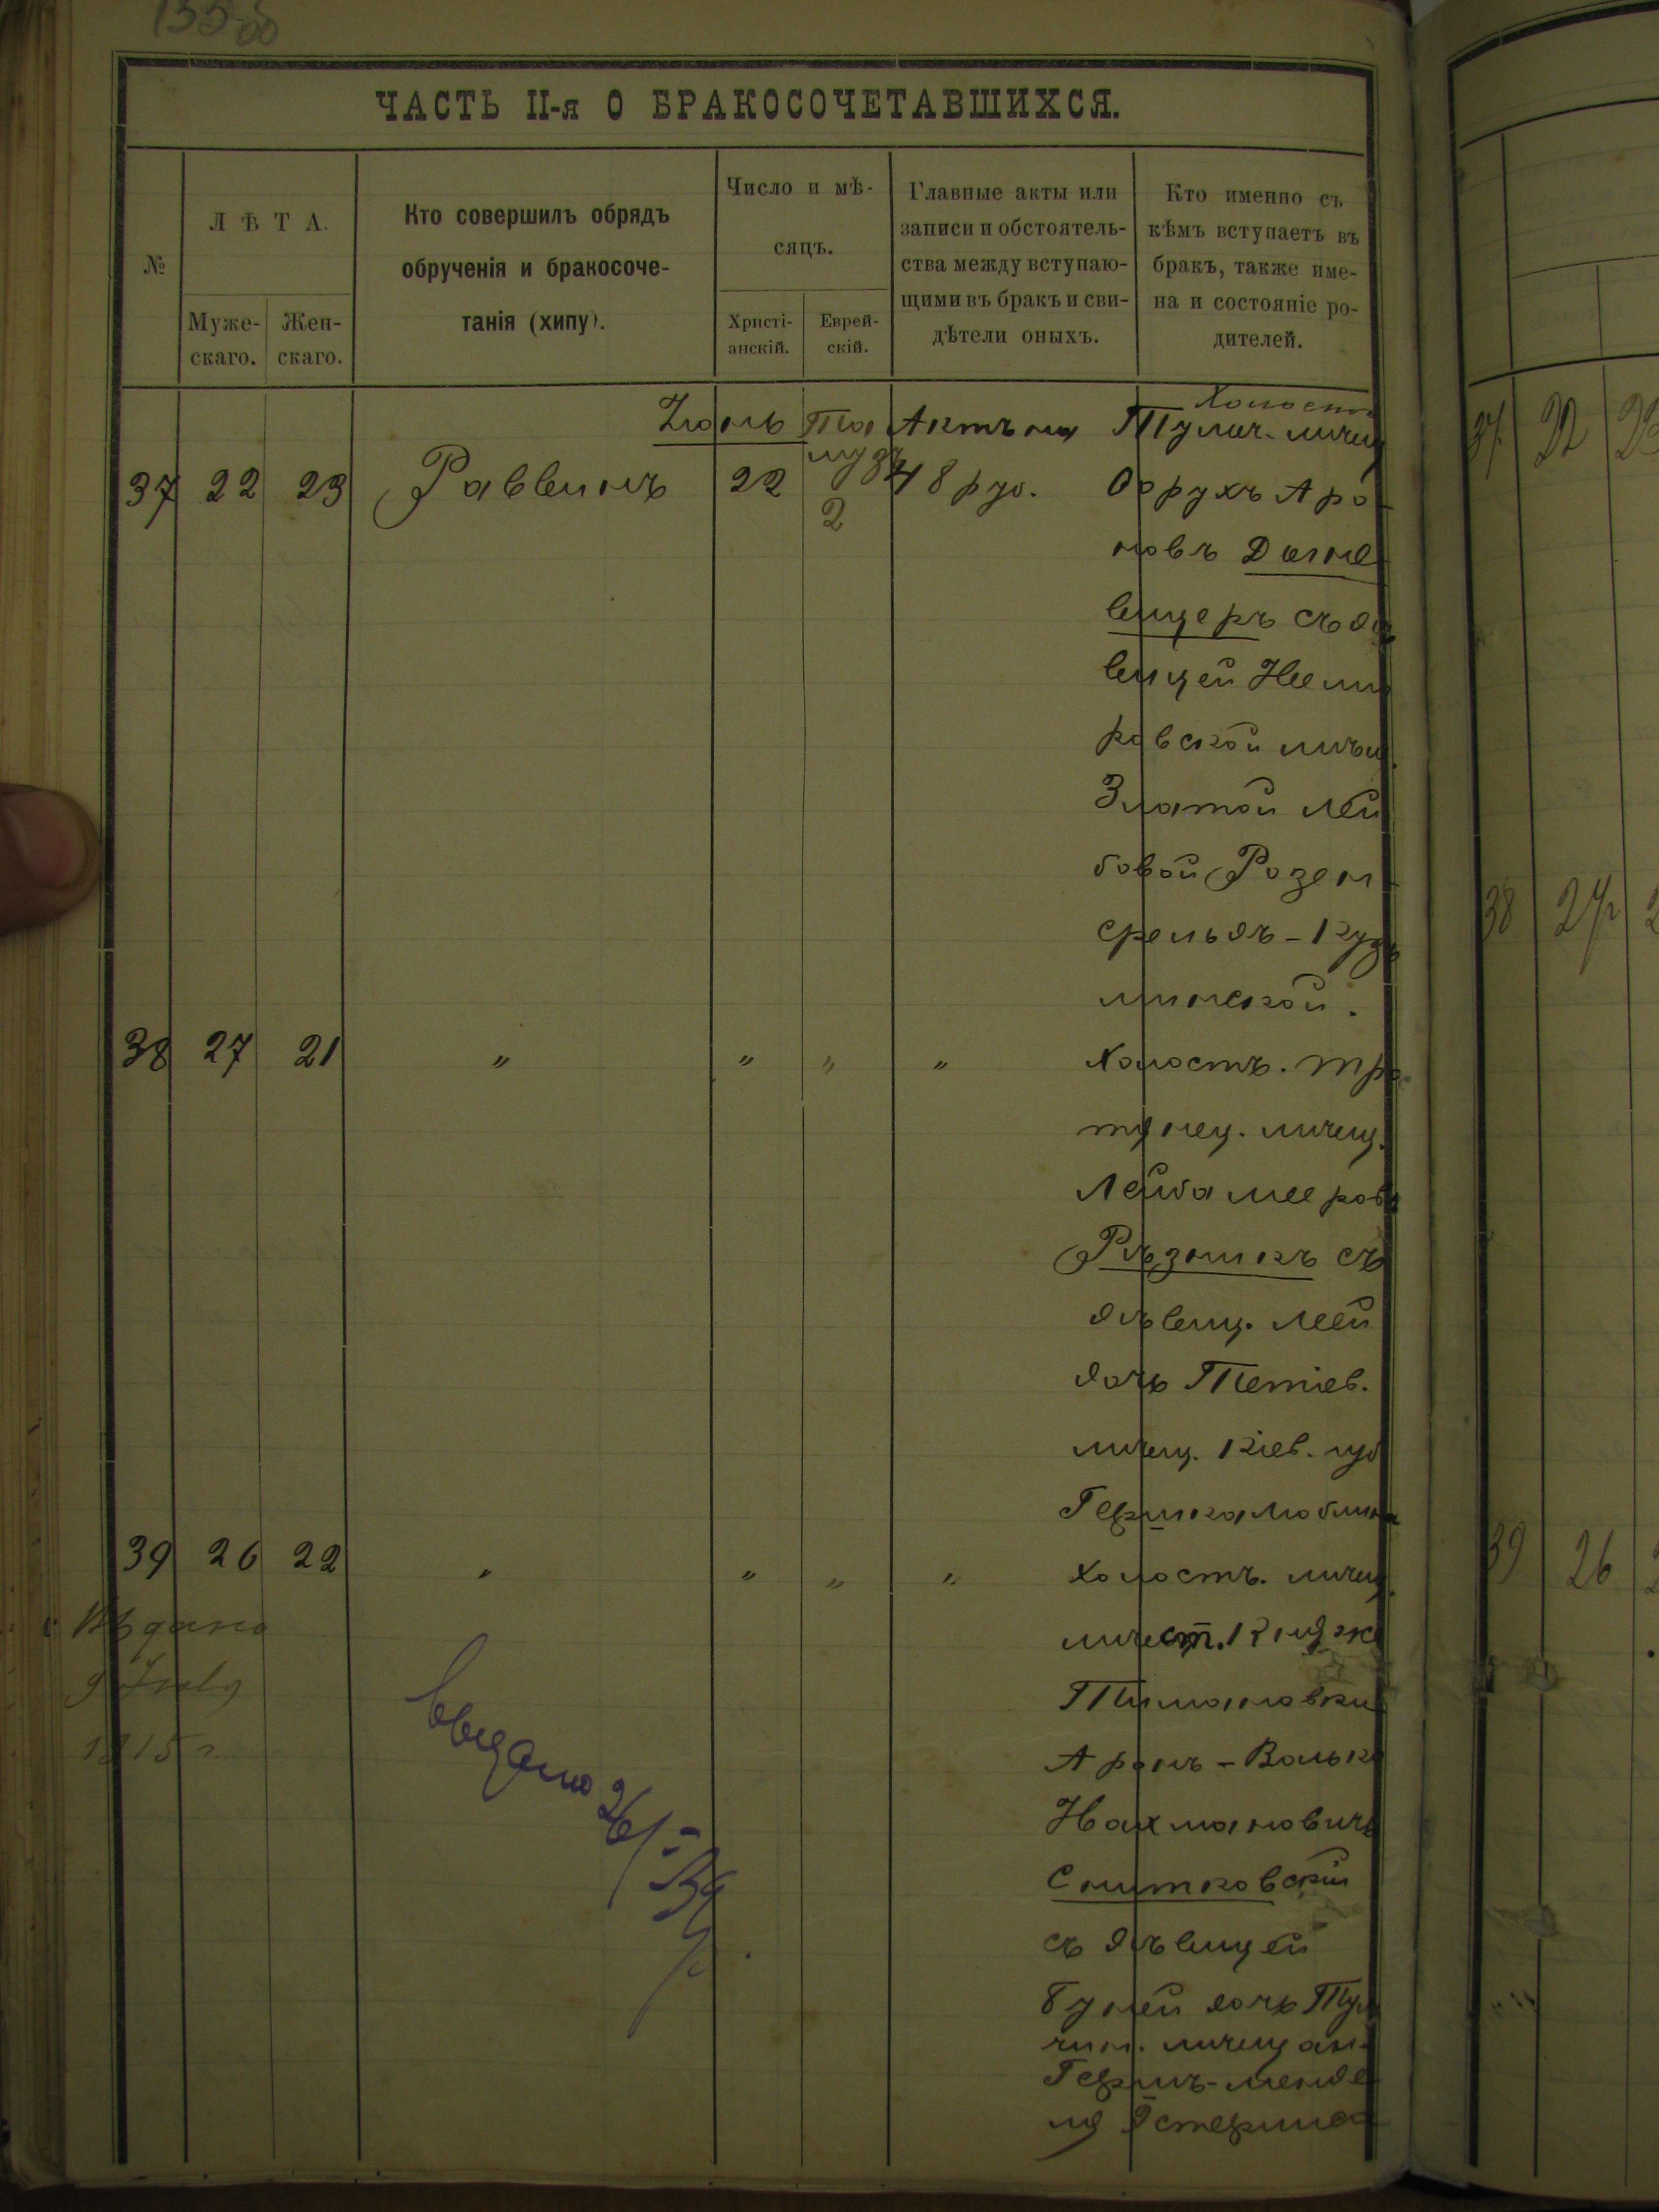 ЧАСТЬ II-я О БРАКОСОЧЕТАВШИХСЯ.
№
ЛѢТА.
Муже-
скаго.
Жен-
скаго.
Кто совершилъ обрядъ
обрученія и бракосоче-
танія (хипу).
Число и мѣ-
сяцъ.
Христі-
анскій.
Еврей-
скій.
Главные акты или
записи и обстоятель-
ства между вступаю-
щими въ бракъ и сви-
дѣтели оныхъ.
Кто именно съ
кѣмъ вступаетъ въ
бракъ, также име-
на и состояніе ро-
дителей.
37 22 23 Раввинъ
Іюль
22
Та
музъ
2
Актъ на
48 руб.
Холостъ
Тульч. мѣщ
Борухъ Аро-
новъ Дашев
вицеръ съ дѣ
вицей Неми
ровской мѣщ.
Златой Лей
бовой Розен
фельдъ-Кузь
минской.
38 27 21 " " " "
Холостъ. Тро
стянец. мѣщ.
Лейба Мееровъ
Рѣзникъ съ
дѣвиц. Леей
дочь Тетіев.
мѣщ. Кіев. губ
Гершка Люблина
39 26 22 " " " "
Холостъ. мѣщ.
мѣст. Княже
Тимановки
Аронъ-Волько
Нахмановичъ
Снитковскій
съ дѣвицей
Буней дочь Туль
чин. мѣщан.
Гершъ-Менде
ля
Выдано
9 July
1915 г.
Выдано 26/I
37 22
38
39 26